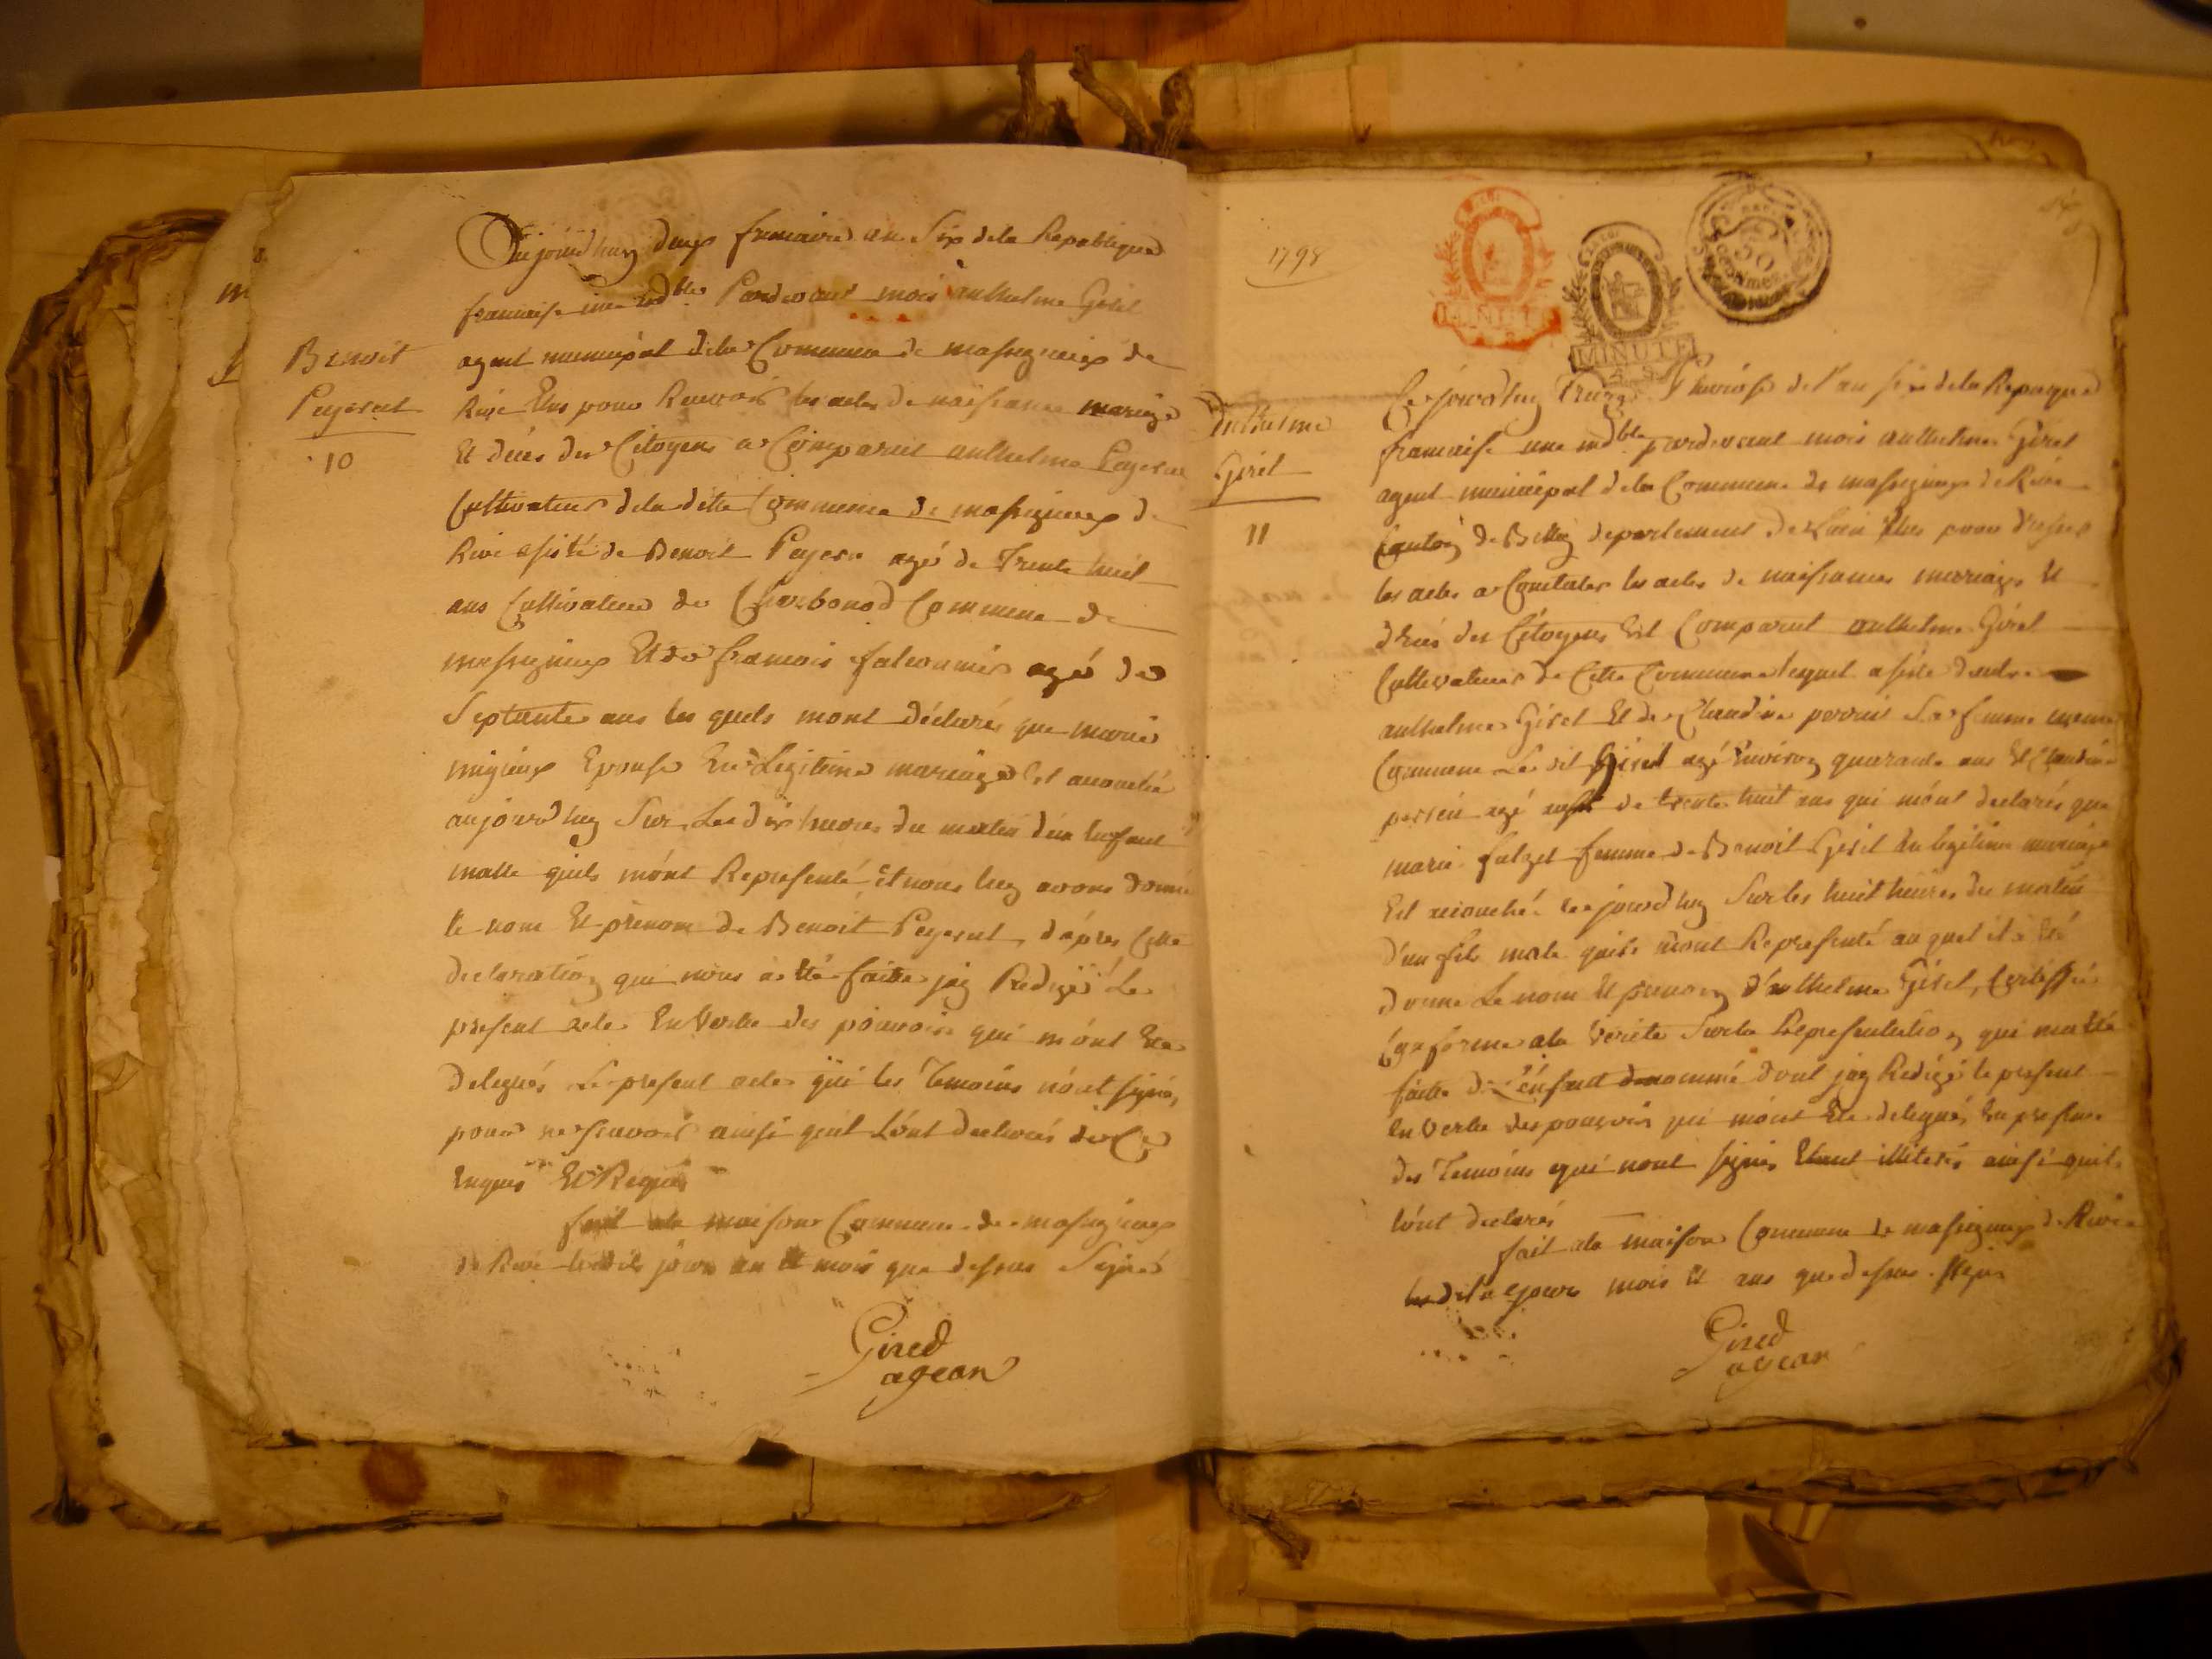 Benoit
Peyeret
10
Aujourdhuy deux frimaire an Six de la Republique
francaise une indble Pardevant moi anthelme Giret
agent municipal dela Commune de massigneux de
Rive Elus pour Recevoir les actes de naissance mariage
Et décés des Citoyens a Comparut anthelme Peyeret
Cultivateur dela ditte Commune de massigneux de
Rive asisté de Benoit Peyere agé de Trente huit
ans Cultivateur de Charbonod Commune de
massigneux Et de francois falconnier agé de
Septante ans les quels mont déclaré que marie
migieux Epouse En Legitime mariage Est anouchée
aujourdhuy Sur Les dix heures du matin d'un Enfant
malle quils mónt Representé et nous luy avons donné
le nom Et prénom de Benoit Peyeret, d'apres Cette
declaration que nous a été faitte jay Redigé Le
present acte En Vertu des pouvoirs qui mónt Eté
delegués Le present acte que les Temoins nónt signé,
pour ne scavoir ainsi quil lónt declarés de Ce
Enquis Et Requis
fait ala maison Commune de massigneux
de Rive lesdits jour an Et mois que dessus Signés
Gired
agean
1798
MINUTE
MINUTE
50
CENTIMES
Anthelme
Giret
11
Cejourdhuy Pluviose de l'an six dela Repuque
francaise une indble pardevant mois anthelme Giret
agent municipal dela Commune de massigneux de Rive
Canton de Belley departement de Lain Elus pour
les actes a Constater les actes de naissances mariage Et
décés des Citoyens Est Comparut anthelme Giret
Cultivateur de Cette Commune lequel asisté dautre
anthelme Giret Et de Claudine perrin Sa femme meme
Commune Le dit Giret agé Environ quarante ans Et Claudine
perrin agé de trente huit ans qui mónt declarés que
marie falget femme de Benoit Giret En legitime mariage
Est acouché cejourdhuy Sur les huit heures du matin
d'un fils male quils mont Representé au quel il a Eté
donné Le nom Et prenom d'anthelme Giret, Certiffié
Conforme ala Verité Sur la Representation qui ma Eté
faitte de L'enfant denommé dont jay Redigé le present
En Vertu des pouvoirs qui mónt Eté delegués, En presence
des Temoins qui nont signés Etant illiterés ainsi quils
lónt declarés
fait ala maison Commune de massigneux de Rive
jour mois Et ans que dessus
Gired
agean